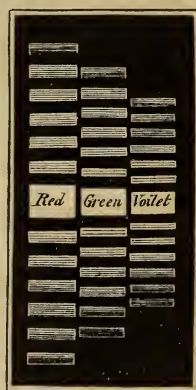 Red Green Voilet